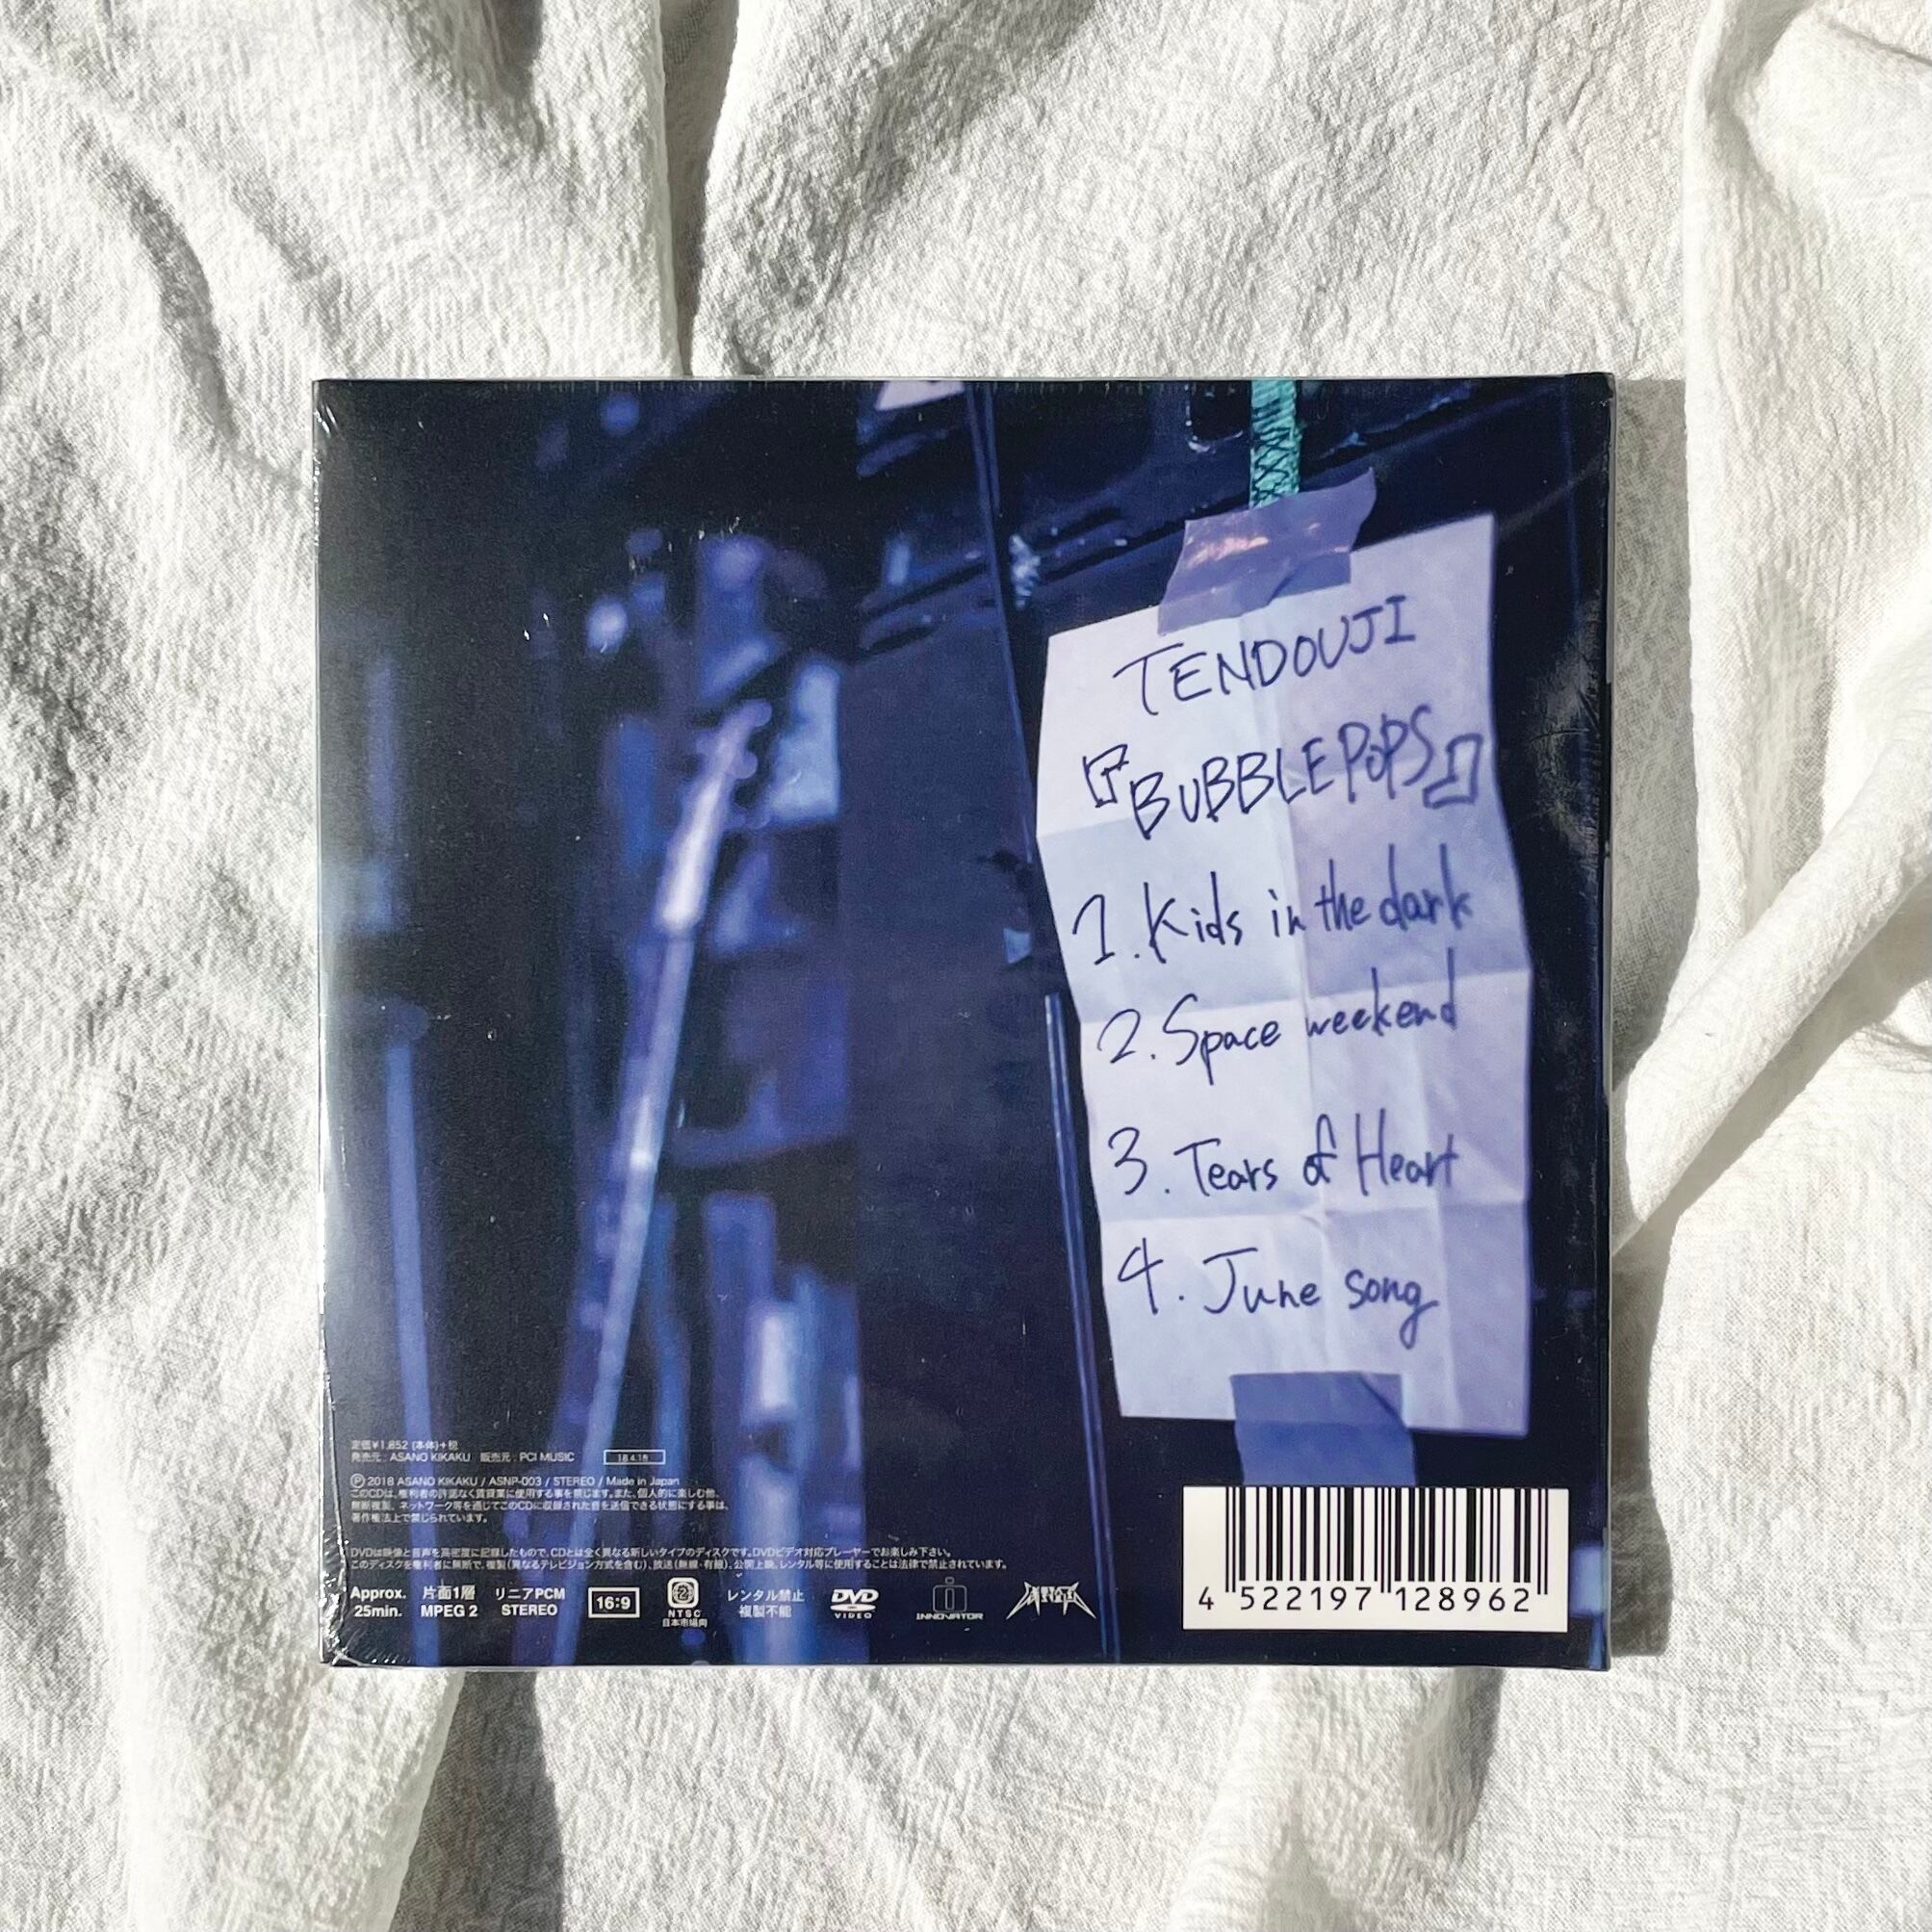 TENDOUJI
『BUBBLE POPS』
1. Kids in the dark
2. Space weekend
3. Tears of Heart
4. June song
定価¥1,852 (本体)+税
発売元: ASANO KIKAKU 販売元: PCI MUSIC 18.4.18
Ⓟ2018 ASANO KIKAKU / ASNP-003 / STEREO / Made in Japan
このCDは、権利者の許諾なく賃貸業に使用する事を禁じます。また、個人的に楽しむ他、
無断複製、ネットワーク等を通じてこのCDに収録された音を送信できる状態にする事は、
著作権法上で禁じられています。
DVDは映像と音声を高密度に記録したもので、CDとは全く異なる新しいタイプのディスクです。DVDビデオ対応プレーヤーでお楽しみ下さい。
このディスクを権利者に無断で、複製(異なるテレビジョン方式を含む)、放送(無線・有線)、公開上映、レンタル等に使用することは法律で禁止されています。
Approx. 25min.
片面1層 MPEG 2
リニアPCM STEREO
16:9
2 NTSC 日本市場向
レンタル禁止 複製不能
DVD VIDEO
INNOVATOR
4 522197 128962